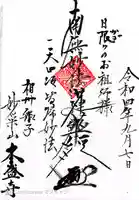 令和四年九月七日
日限りのお祖師様
南無妙法蓮華経
一天四海皆帰妙法
相州逗子
本盛寺